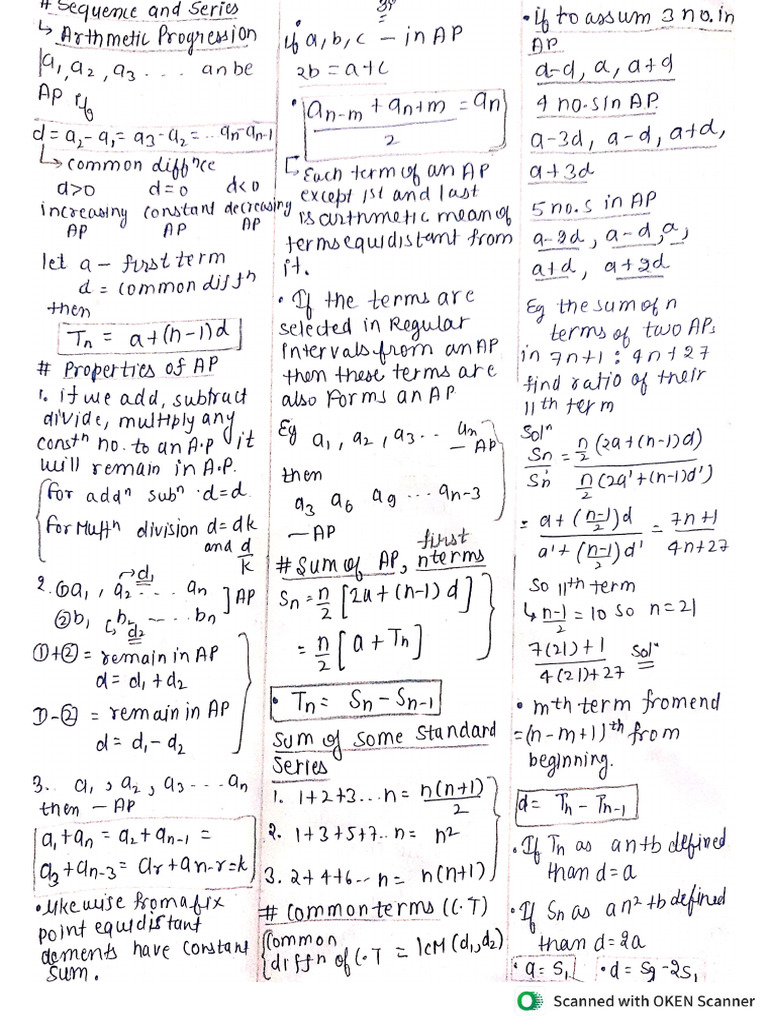 # Sequence and Series
↳ Arthmetic Progression
a₁, a₂, a₃ ... an be
AP if
d = a₂-a₁ = a₃-a₂ = ... an-an-1
↳ common diffnce
d>0 d=0 d<0
increasing constant decreasing
AP AP AP
let a - first term
d = common diffn
then
Tn = a+(n-1)d
# Properties of AP
1. if we add, subtract
divide, multiply any
constn no. to an A.p it
will remain in A.P.
for addn subn d=d
for Multn division d=dk
and d/k
2. ① a₁, a₂ ... an ] AP
→ d₁
② b₁, b₂ ... bn
↳ d₂
①+② = remain in AP
d = d₁+d₂
①-② = remain in AP
d = d₁-d₂
3. a₁, a₂, a₃ ... an
then - AP
a₁+an = a₂+an-1 =
a₃+an-3 = ar+an-r=k
• likewise from a fix
point equidistant
elements have constant
sum.
if a, b, c - in AP
2b = a+c
• (an-m + an+m)/2 = an
Each term of an AP
except 1st and last
is arthmetic mean of
terms equidistant from
it.
• If the terms are
selected in Regular
intervals from an AP
then these terms are
also forms an AP
Eg a₁, a₂, a₃ ... an
- AP
then
a₃ a₆ a₉ ... an-3
- AP
# Sum of AP, first nterms
Sn = n/2 [2a+(n-1)d]
= n/2 [a+Tn]
• Tn = Sn - Sn-1
Sum of Some Standard
Series
1. 1+2+3...n = n(n+1)/2
2. 1+3+5+7.. n = n²
3. 2+4+6... n = n(n+1)
# Common terms (C.T)
Common
diffn of C.T = lCM(d₁,d₂)
• if to assume 3 no. in
AP
a-d, a, a+d
4 no.s in AP.
a-3d, a-d, a+d,
a+3d
5 no.s in AP
a-2d, a-d, a,
a+d, a+2d
Eg the sum of n
terms of two APs
in 7n+1 : 4n+27
find ratio of their
11th term
Soln
Sn/Sn' = n/2 (2a+(n-1)d) / n/2 (2a'+(n-1)d')
= a+((n-1)/2)d / a'+((n-1)/2)d' = 7n+1 / 4n+27
So 11th term
↳ n-1/2 = 10 so n=21
7(21)+1 / 4(21)+27 Soln
• mth term from end
=(n-m+1)th from
beginning.
d = Tn - Tn-1
• If Tn as an+b defined
than d=a
• If Sn as an²+b defined
than d=2a
• a=S₁ • d=S₂-2S₁
Scanned with OKEN Scanner